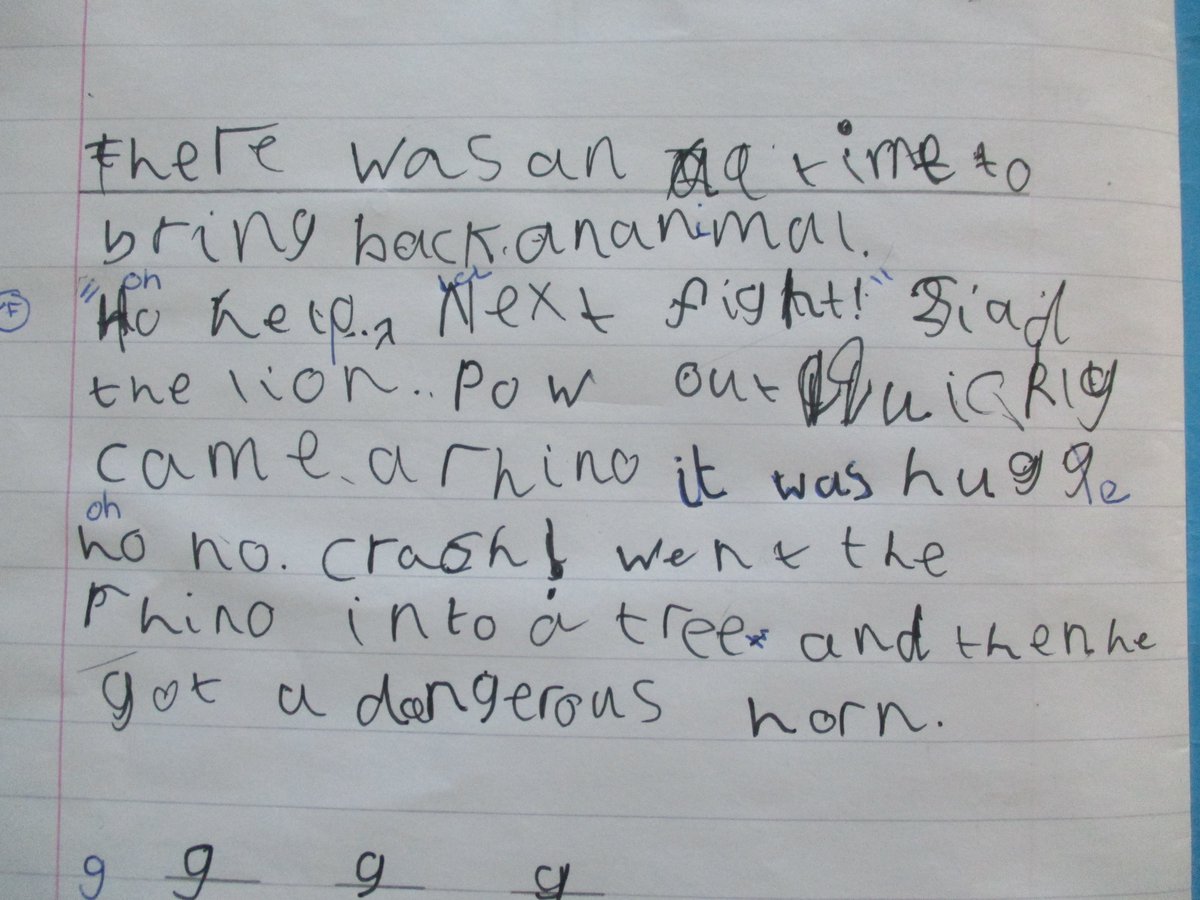 there was an a time to
bring back an animal.
oh
"Ho help. Next fight!" Siad
the lion.. Pow out Quickly
came a rhino it was hugge
oh
no no. crash! went the
rhino into a tree and then he
got a dangerous horn.
g g g g